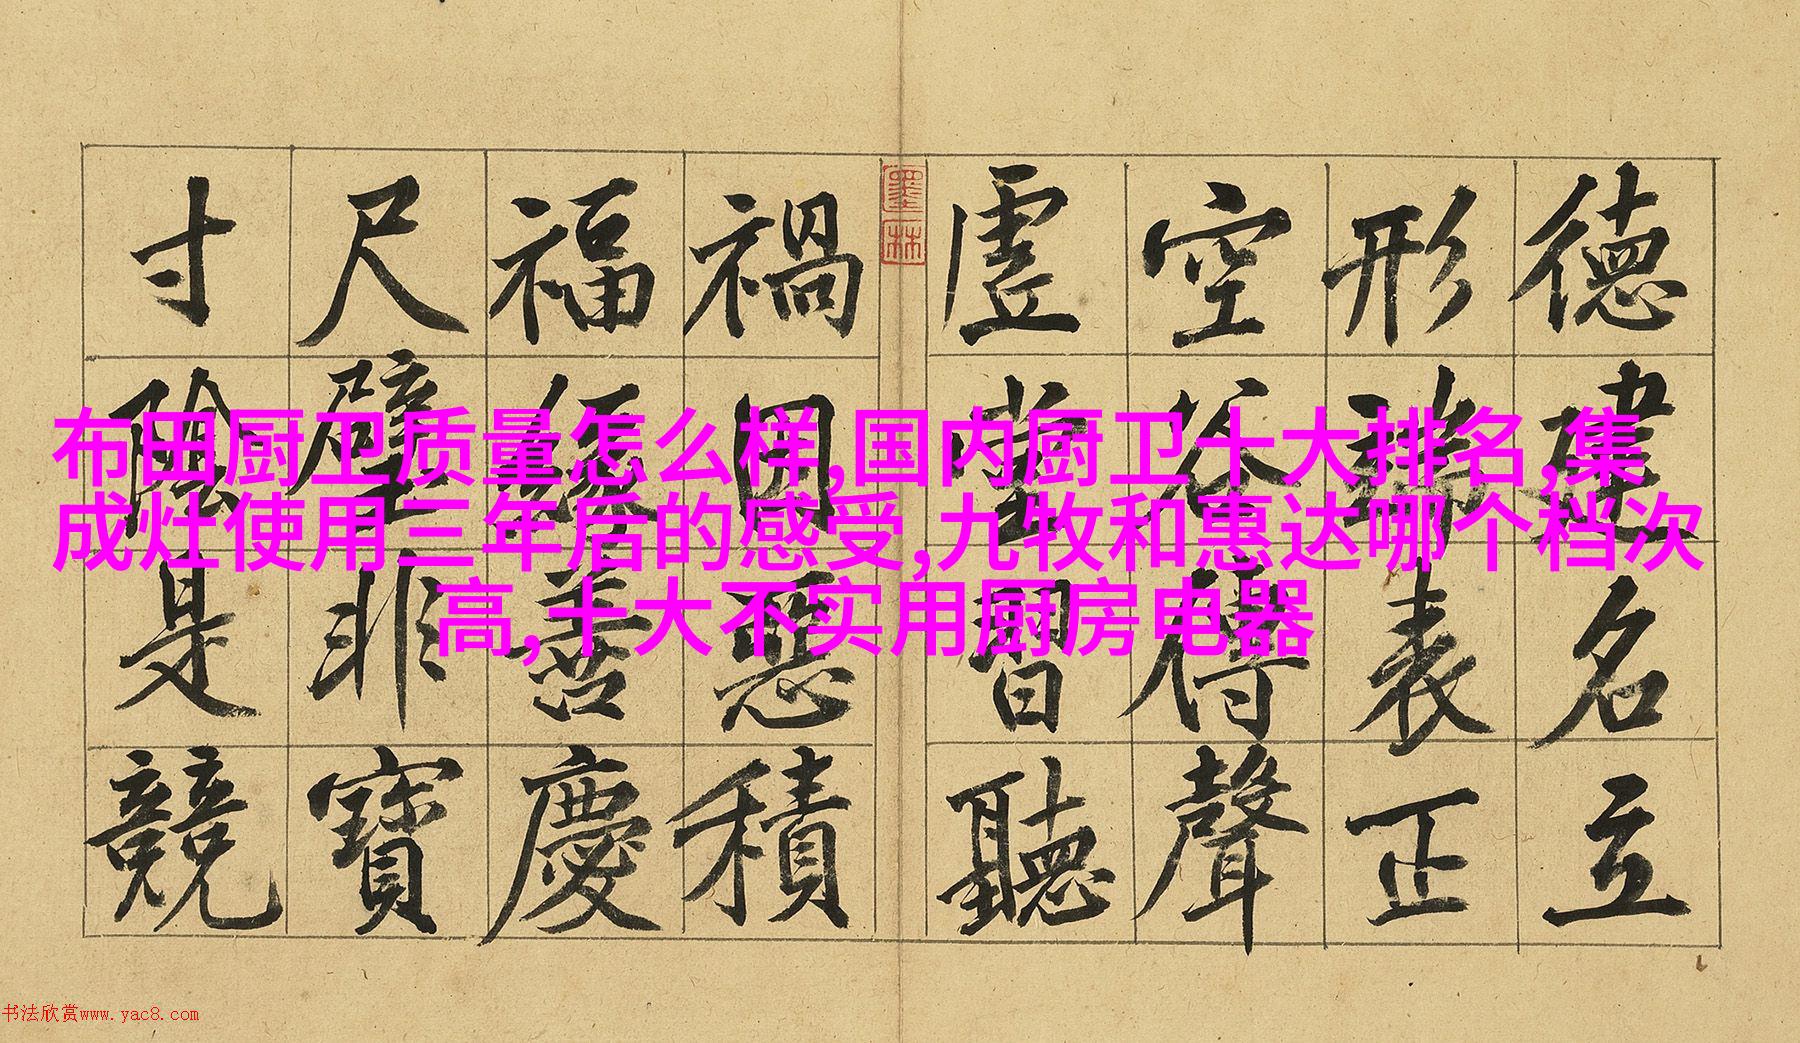 德建名立
形端表正
空谷傳聲
虛堂習聽
墨林
禍因惡積
福緣善慶
尺璧非寶
寸陰是競
布田厨卫质量怎么样,国内厨卫十大排名,集
成灶使用三年后的感受,九牧和惠达哪个档次
高,十大不实用厨房电器
书法欣赏www.yac8.com